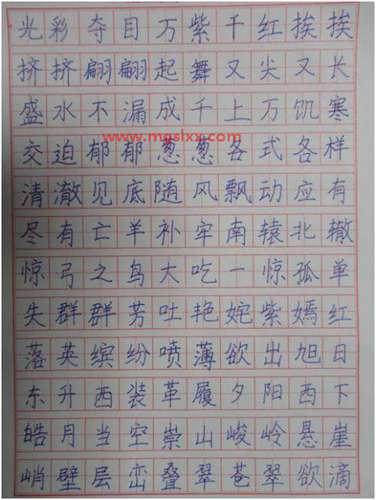 光彩夺目万紫千红挨挨
挤挤翩翩起舞又尖又长
盛水不漏成千上万饥寒
www.maslxx.com
交迫郁郁葱葱各式各样
清澈见底随风飘动应有
尽有亡羊补牢南辕北辙
惊弓之鸟大吃一惊孤单
失群群芳吐艳姹紫嫣红
落英缤纷喷薄欲出旭日
东升西装革履夕阳西下
皓月当空崇山峻岭悬崖
峭壁层峦叠翠苍翠欲滴